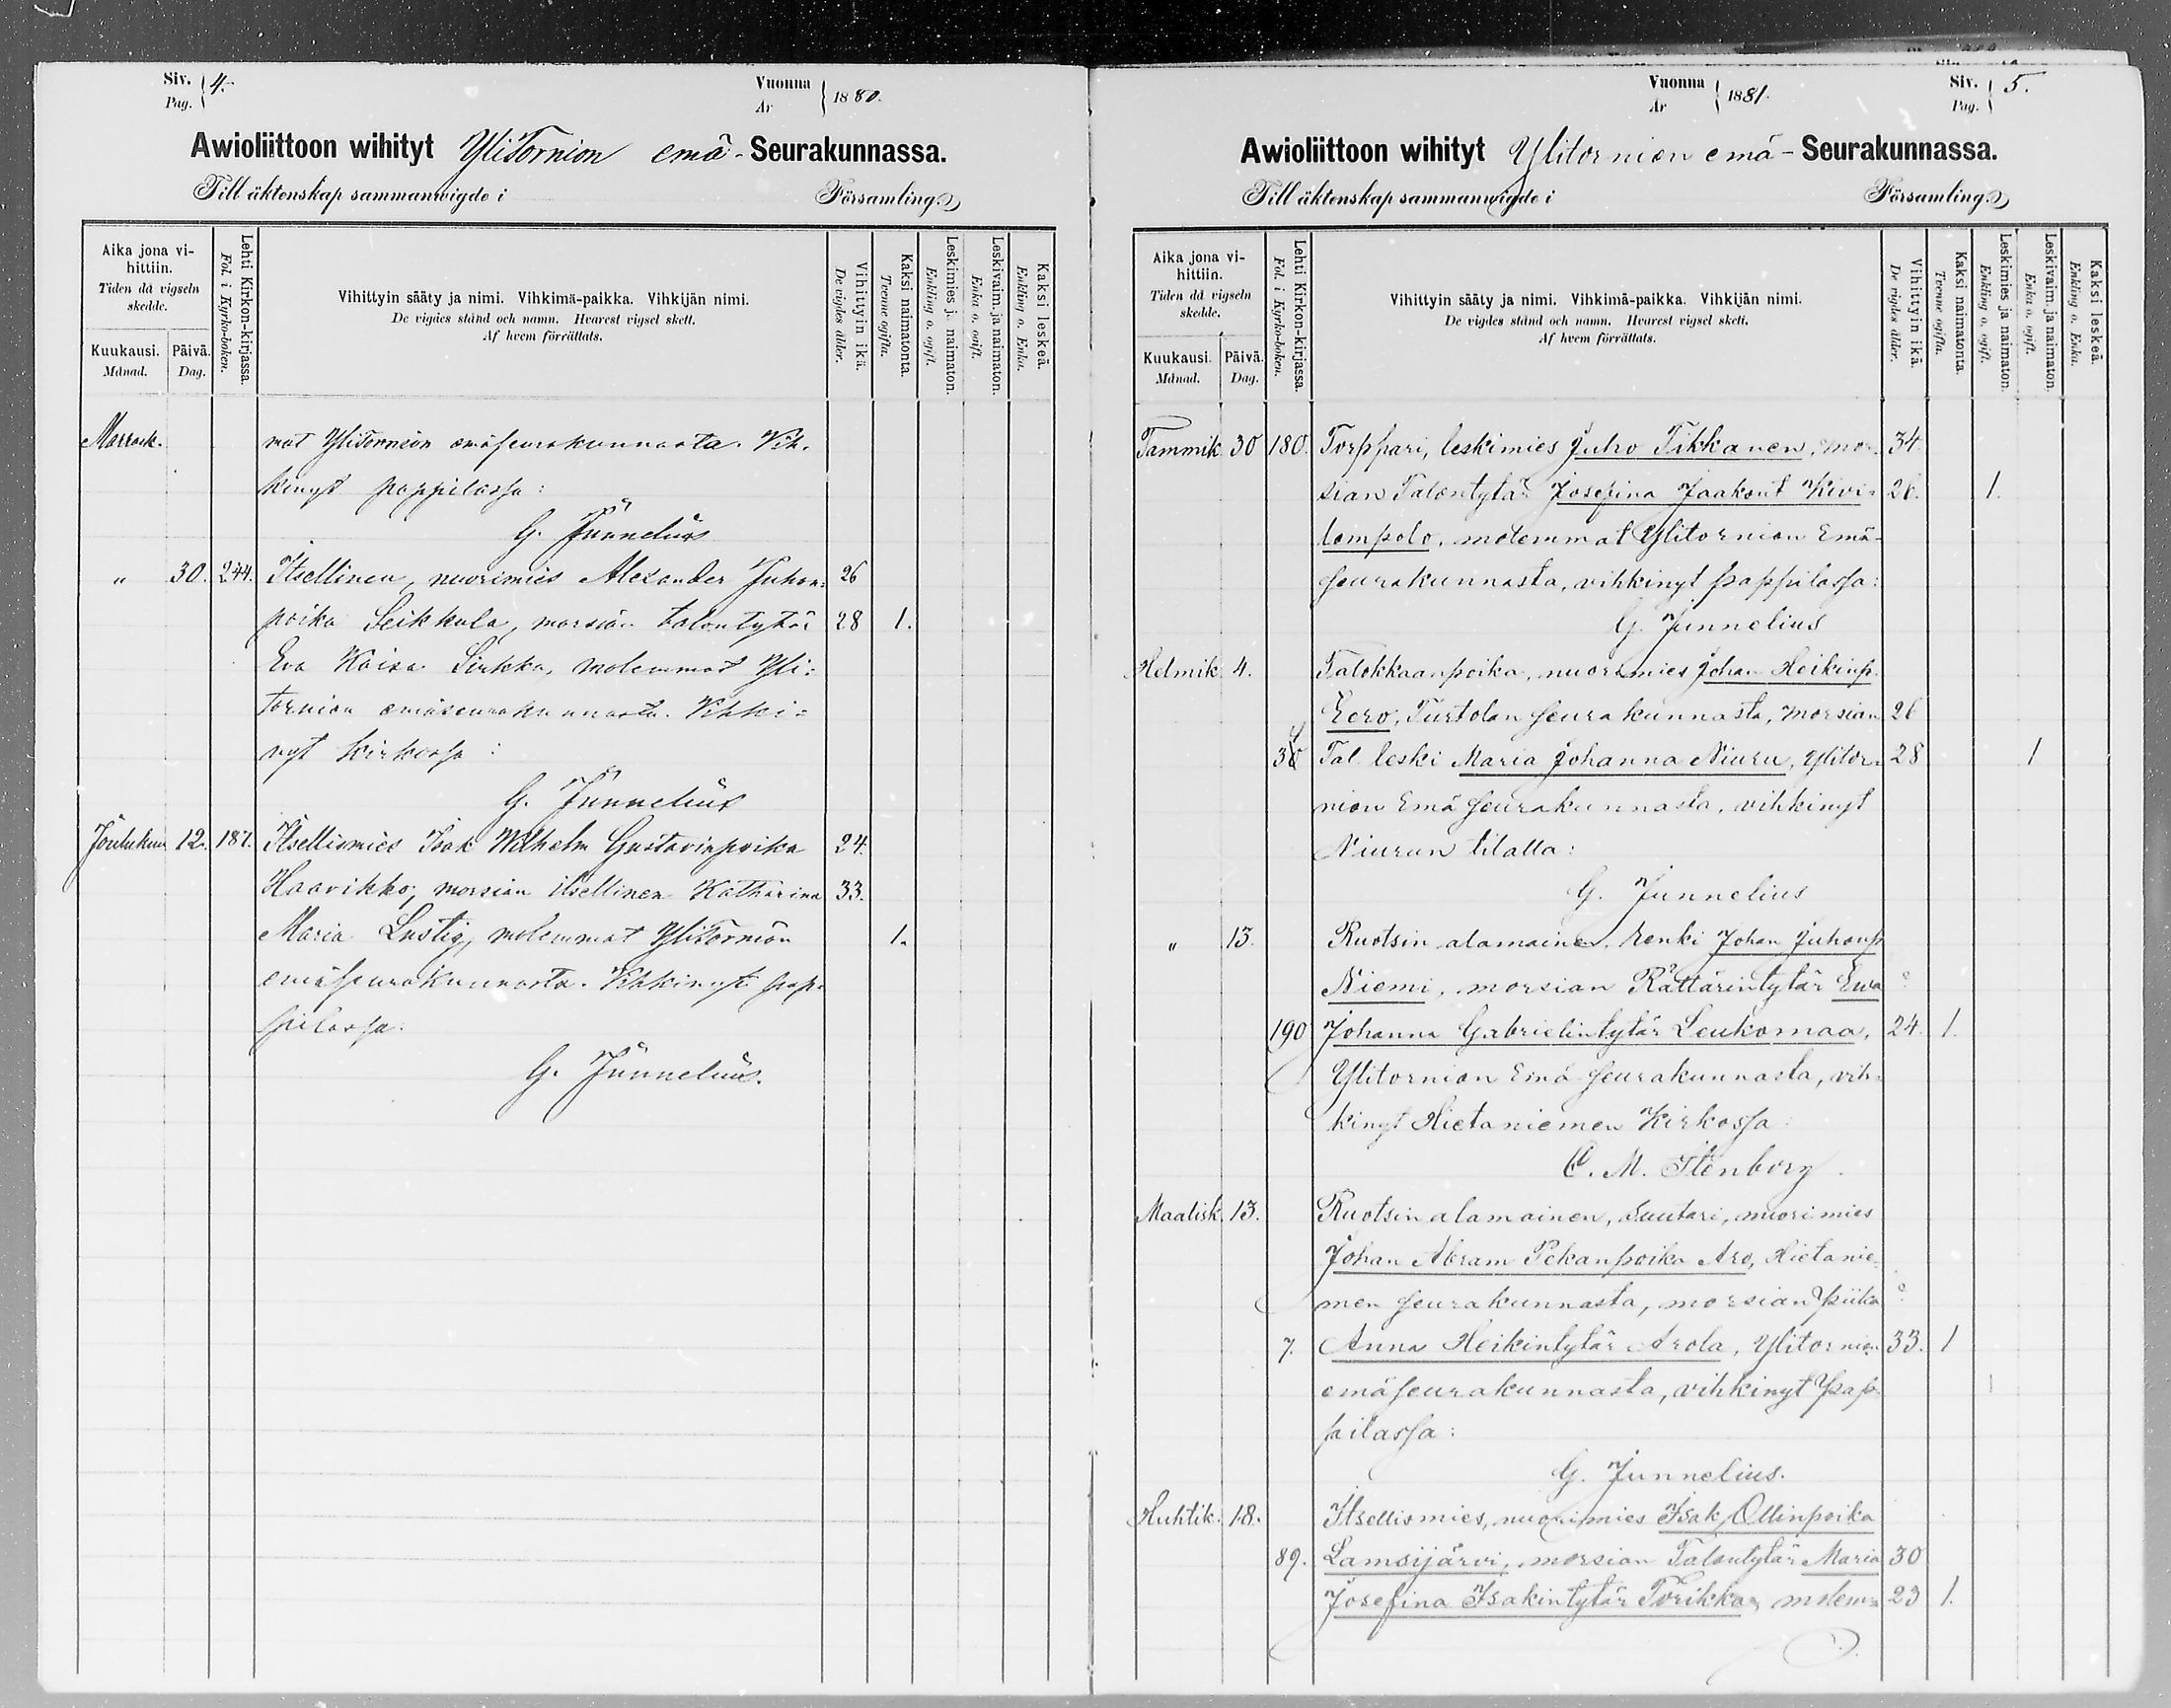 Siv. 4. Vuonna 1880.
Pag. År
Awioliittoon wihityt YliTornion emä-Seurakunnassa.
Till äktenskap sammanvigde i Församling.
Aika jona vihittiin. Tiden då vigseln skedde.
Kuukausi. Månad. Päivä. Dag.
Lehti Kirkon-kirjassa. Fol. i Kyrko-boken.
Vihittyin sääty ja nimi. Vihkimä-paikka. Vihkijän nimi.
De vigdes stånd och namn. Hvarest vigsel skett.
Af hvem förrättats.
Vihittyin ikä. De vigdes ålder.
Kaksi naimatonta. Tvenne ogifta.
Leskimies ja naimaton. Enkling o. ogift.
Leskivaim. ja naimaton. Enka o. ogift.
Kaksi leskeä. Enkling o. Enka.
Marrask. mat YliTornion emäseurakunnasta. Vih-
kinyt pappilassa:
G. Junnelius
" 30. 244. Itsellinen, nuorimies Alexander Juhon= 26
poika Seikkala, morsian talontytär 28 1.
Eva Kaisa Sirkka, molemmat Yli=
tornion emäseurakunnasta. Vihki=
nyt kirkossa:
G. Junnelius
Joulukuu 12. 187. Itsellismies Isak Wilhelm Gustavinpoika 24.
Haavikko, morsian itsellinen Katharina 33.
Maria Lustig, molemmat YliTornion 1.
emäseurakunnasta. Vihkinyt pap-
pilassa.
G. Junnelius.
Vuonna 1881. Siv. 5.
År Pag.
Awioliittoon wihityt Ylitornion emä-Seurakunnassa.
Till äktenskap sammanvigde i Församling.
Aika jona vihittiin. Tiden då vigseln skedde.
Kuukausi. Månad. Päivä. Dag.
Lehti Kirkon-kirjassa. Fol. i Kyrko-boken.
Vihittyin sääty ja nimi. Vihkimä-paikka. Vihkijän nimi.
De vigdes stånd och namn. Hvarest vigsel skett.
Af hvem förrättats.
Vihittyin ikä. De vigdes ålder.
Kaksi naimatonta. Tvenne ogifta.
Leskimies ja naimaton. Enkling o. ogift.
Leskivaim. ja naimaton. Enka o. ogift.
Kaksi leskeä. Enkling o. Enka.
Tammik. 30 180. Torppari, leskimies Juho Tikkanen, mor- 34.
sian Talontytär Josefina Jaakont Kivi= 26. 1.
lompolo, molemmat Ylitornion Emä-
seurakunnasta, vihkinyt pappilassa:
G. Junnelius
Helmik. 4. Talokkaanpoika, nuorimies Johan Heikinp.
Eero, Turtolan seurakunnasta, morsian 26
Tal. leski Maria Johanna Niuru, Ylitor= 28 1
nion Emä seurakunnasta, vihkinyt
Niurun tilalla:
G. Junnelius
" 13. Ruotsin alamainen, renki Johan Juhonp
Niemi, morsian Rättärintytär Ewa ?
190 Johanna Gabrielintytär Leukomaa, 24. 1.
Ylitornion Emä seurakunnasta, vih=
kinyt Hietaniemen Kirkossa:
C. M. Stenborg.
Maalisk. 13. Ruotsin alamainen, suutari, nuorimies
Johan Abram Pekanpoika Aro, Hietanie-
men seurakunnasta, morsian Piika ?
7. Anna Heikintytär Arola, Ylitornion 33. 1
emäseurakunnasta, vihkinyt Pap-
pilassa:
G. Junnelius.
Huhtik. 18. Itsellismies, nuorimies Isak Ollinpoika
89. Lamsijärvi, morsian Talontytär Maria 30
Josefina Isakintytär Törikka, molem= 23 1.